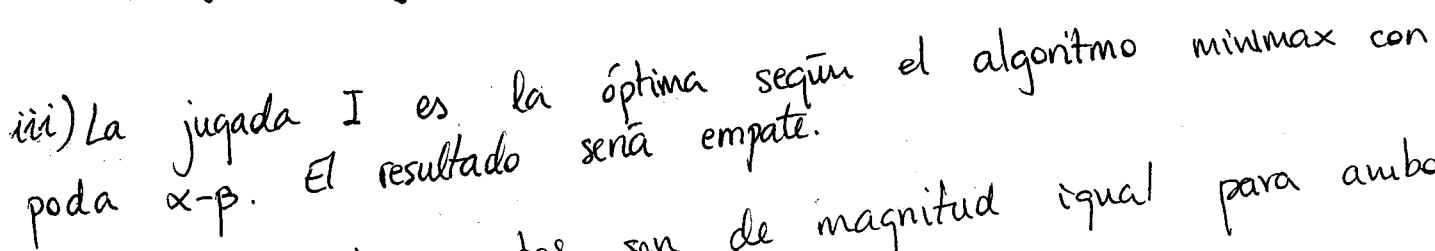 iii) La jugada I es la óptima según el algoritmo minimax con
poda α-β. El resultado será empate.
son de magnitud igual para ambo